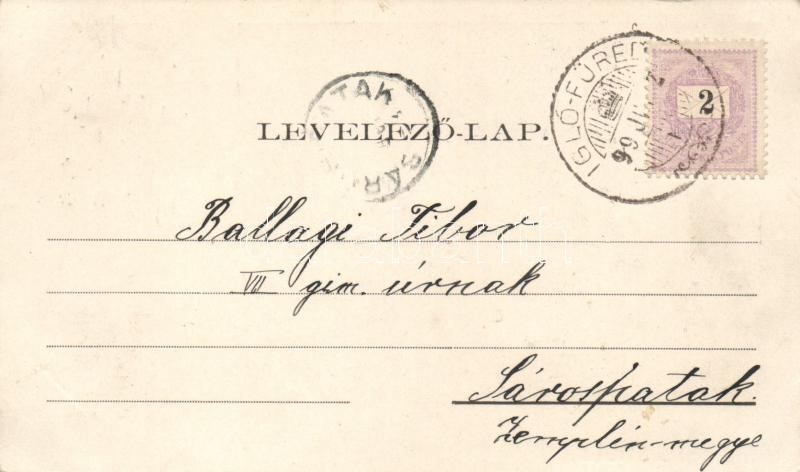 LEVELEZŐ-LAP.
IGLÓ-FÜRED
2
Ballagi Tibor
VII gim. úrnak
Sárospatak.
Zemplén-megye